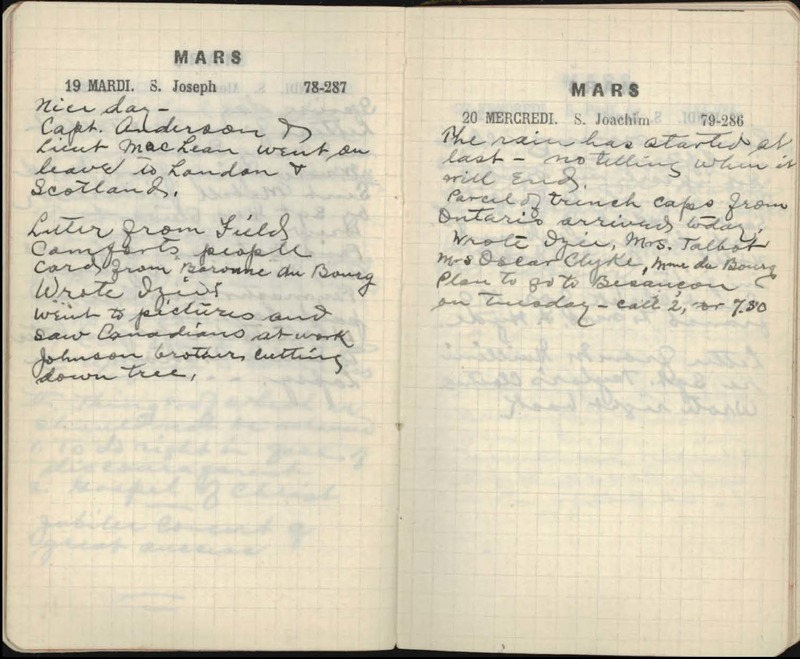 MARS
19 MARDI. S. Joseph 78-287
Nice day -
Capt. Anderson &
Lieut MacLean went on
leave to London &
Scotland.
Letter from Field
Comforts people
Card from Baronne du Bourg
Wrote Izie
Went to pictures and
saw Canadians at work
Johnson brothers cutting
down tree.
MARS
20 MERCREDI. S. Joachim 79-286
The rain has started at
last - no telling when it
will End.
Parcel of trench caps from
Ontario arrived today.
Wrote Izie, Mrs. Talbot
Mrs Oscar Clyke, Mme du Bourg
Plan to go to Besancon
on Tuesday - call 2, or 7.30